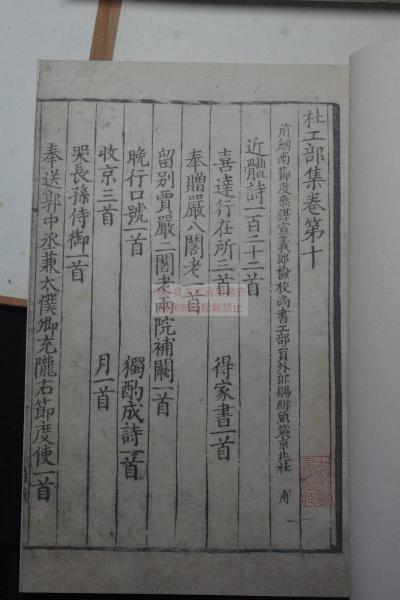 杜工部集卷第十
前劒南節度叅謀宣義郎檢校尚書工部員外郎賜緋魚袋京兆杜 甫
近體詩一百二十一首
喜達行在所三首 得家書一首
奉贈嚴八閣老一首
留別賈嚴二閣老兩院補闕一首
晚行口號一首 獨酌成詩一首
收京三首 月一首
哭長孫侍御一首
奉送郭中丞兼太僕卿充隴右節度使一首